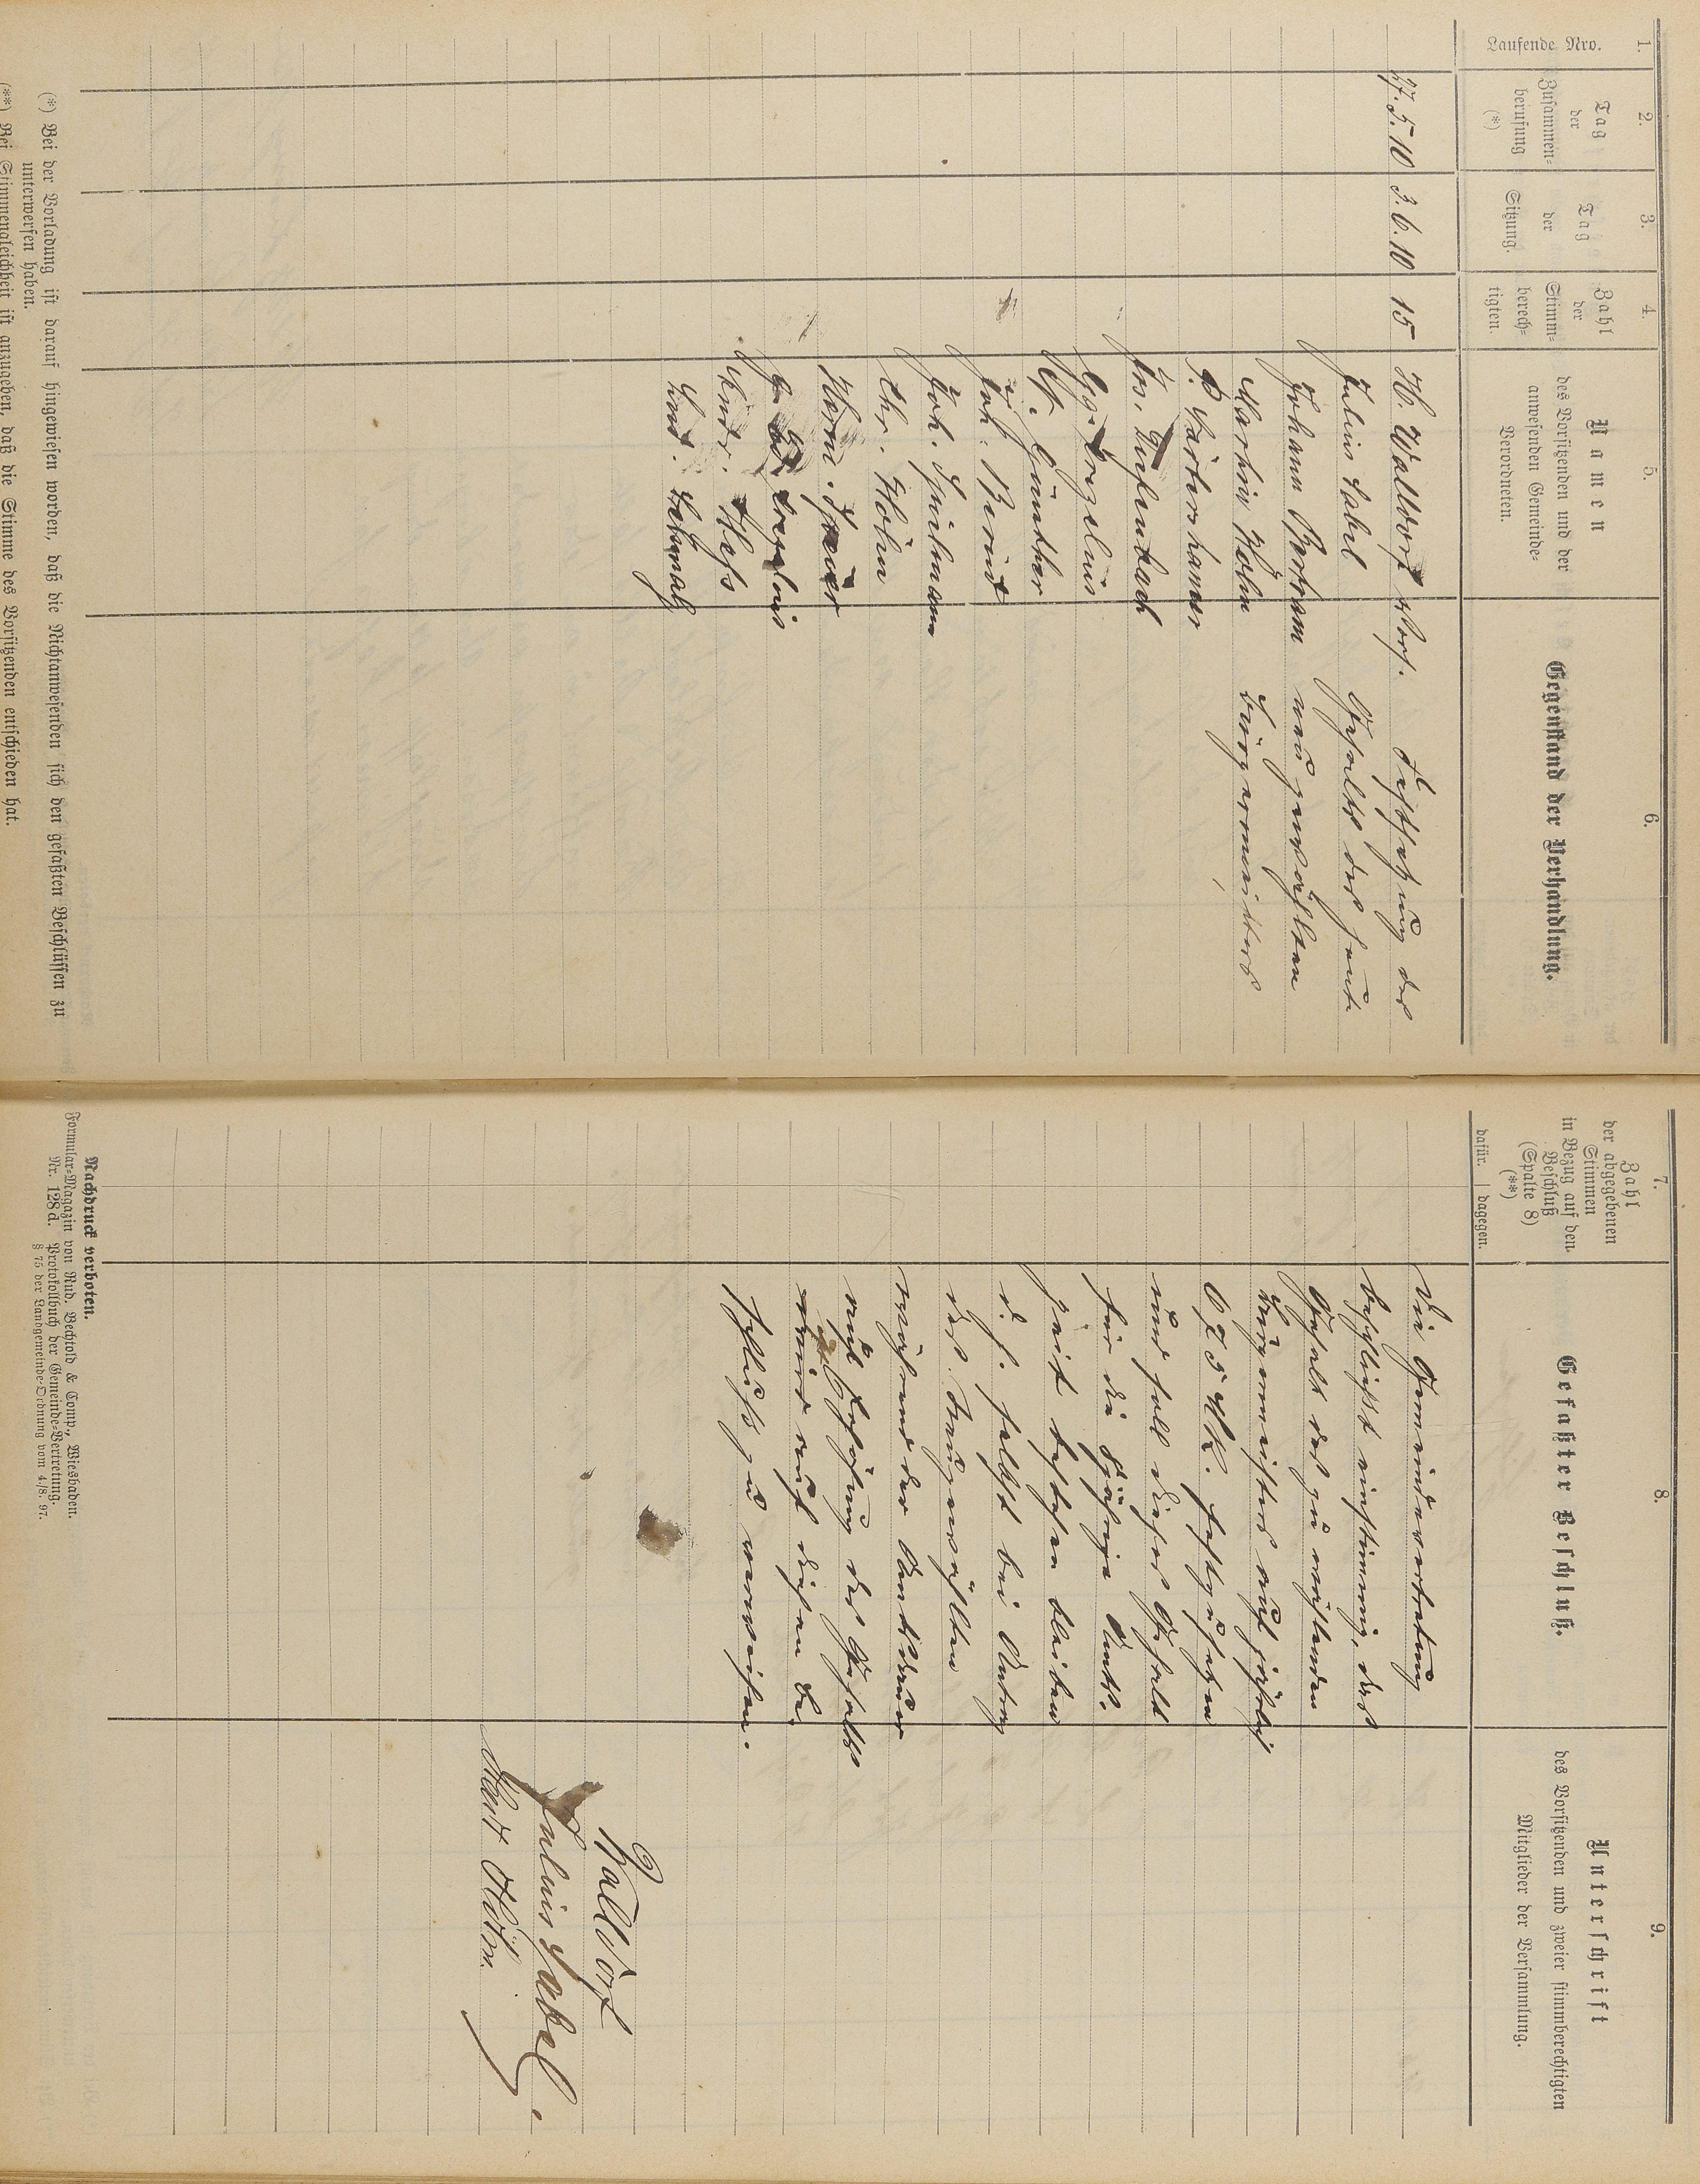 1.
Laufende Nro.
2.
Tag
der
Zusammen-
berufung
(*)
3.
Tag
der
Sitzung.
4.
Zahl
der
Stimm-
berech-
tigten.
5.
Namen
des Vorsitzenden und der
anwesenden Gemeinde-
Verordneten.
6.
Gegenstand der Verhandlung.
27. 5. 10
3. 6. 10
15
H. Walldorf Vors.
Julius Sabel
Johann Bertram
Martin Hohn
Jos.
Günther
Joh. Berind
Joh.
Chr. Höhn
Herm.
Hess
Festsetzung des
Gehalts des heute
neu gewählten
Bürgermeisters
(*) Bei der Vorladung ist darauf hingewiesen worden, daß die Nichtanwesenden sich den gefaßten Beschlüssen zu
unterwerfen haben.
(**) Bei Stimmengleichheit ist anzugeben, daß die Stimme des Vorsitzenden entschieden hat.
7.
Zahl
der abgegebenen
Stimmen
in Bezug auf den
Beschluß
(Spalte 8)
(**)
dafür. | dagegen.
8.
Gefaßter Beschluß.
9.
Unterschrift
des Vorsitzenden und zweier stimmberechtigten
Mitglieder der Versammlung.
Die Gemeindevertretung
beschließt einstimmig, das
Gehalt des zu wählenden
Bürgermeisters auf jährlich
675 Mk. festzusetzen
und soll dieses Gehalt
für die 8jährige Amts-
zeit bestehen bleiben
d. h. selbst bei Antrag
des Neugewählten
während der Amtsdauer
auf Erhöhung des Gehalts
wird auf diesen Be-
schluß zu verweisen.
Walldorf
Julius Sabel.
Mart Höhn.
Nachdruck verboten.
Formular-Magazin von Rud. Bechtold & Comp., Wiesbaden.
Nr. 128d. Protokollbuch der Gemeinde-Vertretung.
§ 75 der Landgemeinde-Ordnung vom 4./8. 97.